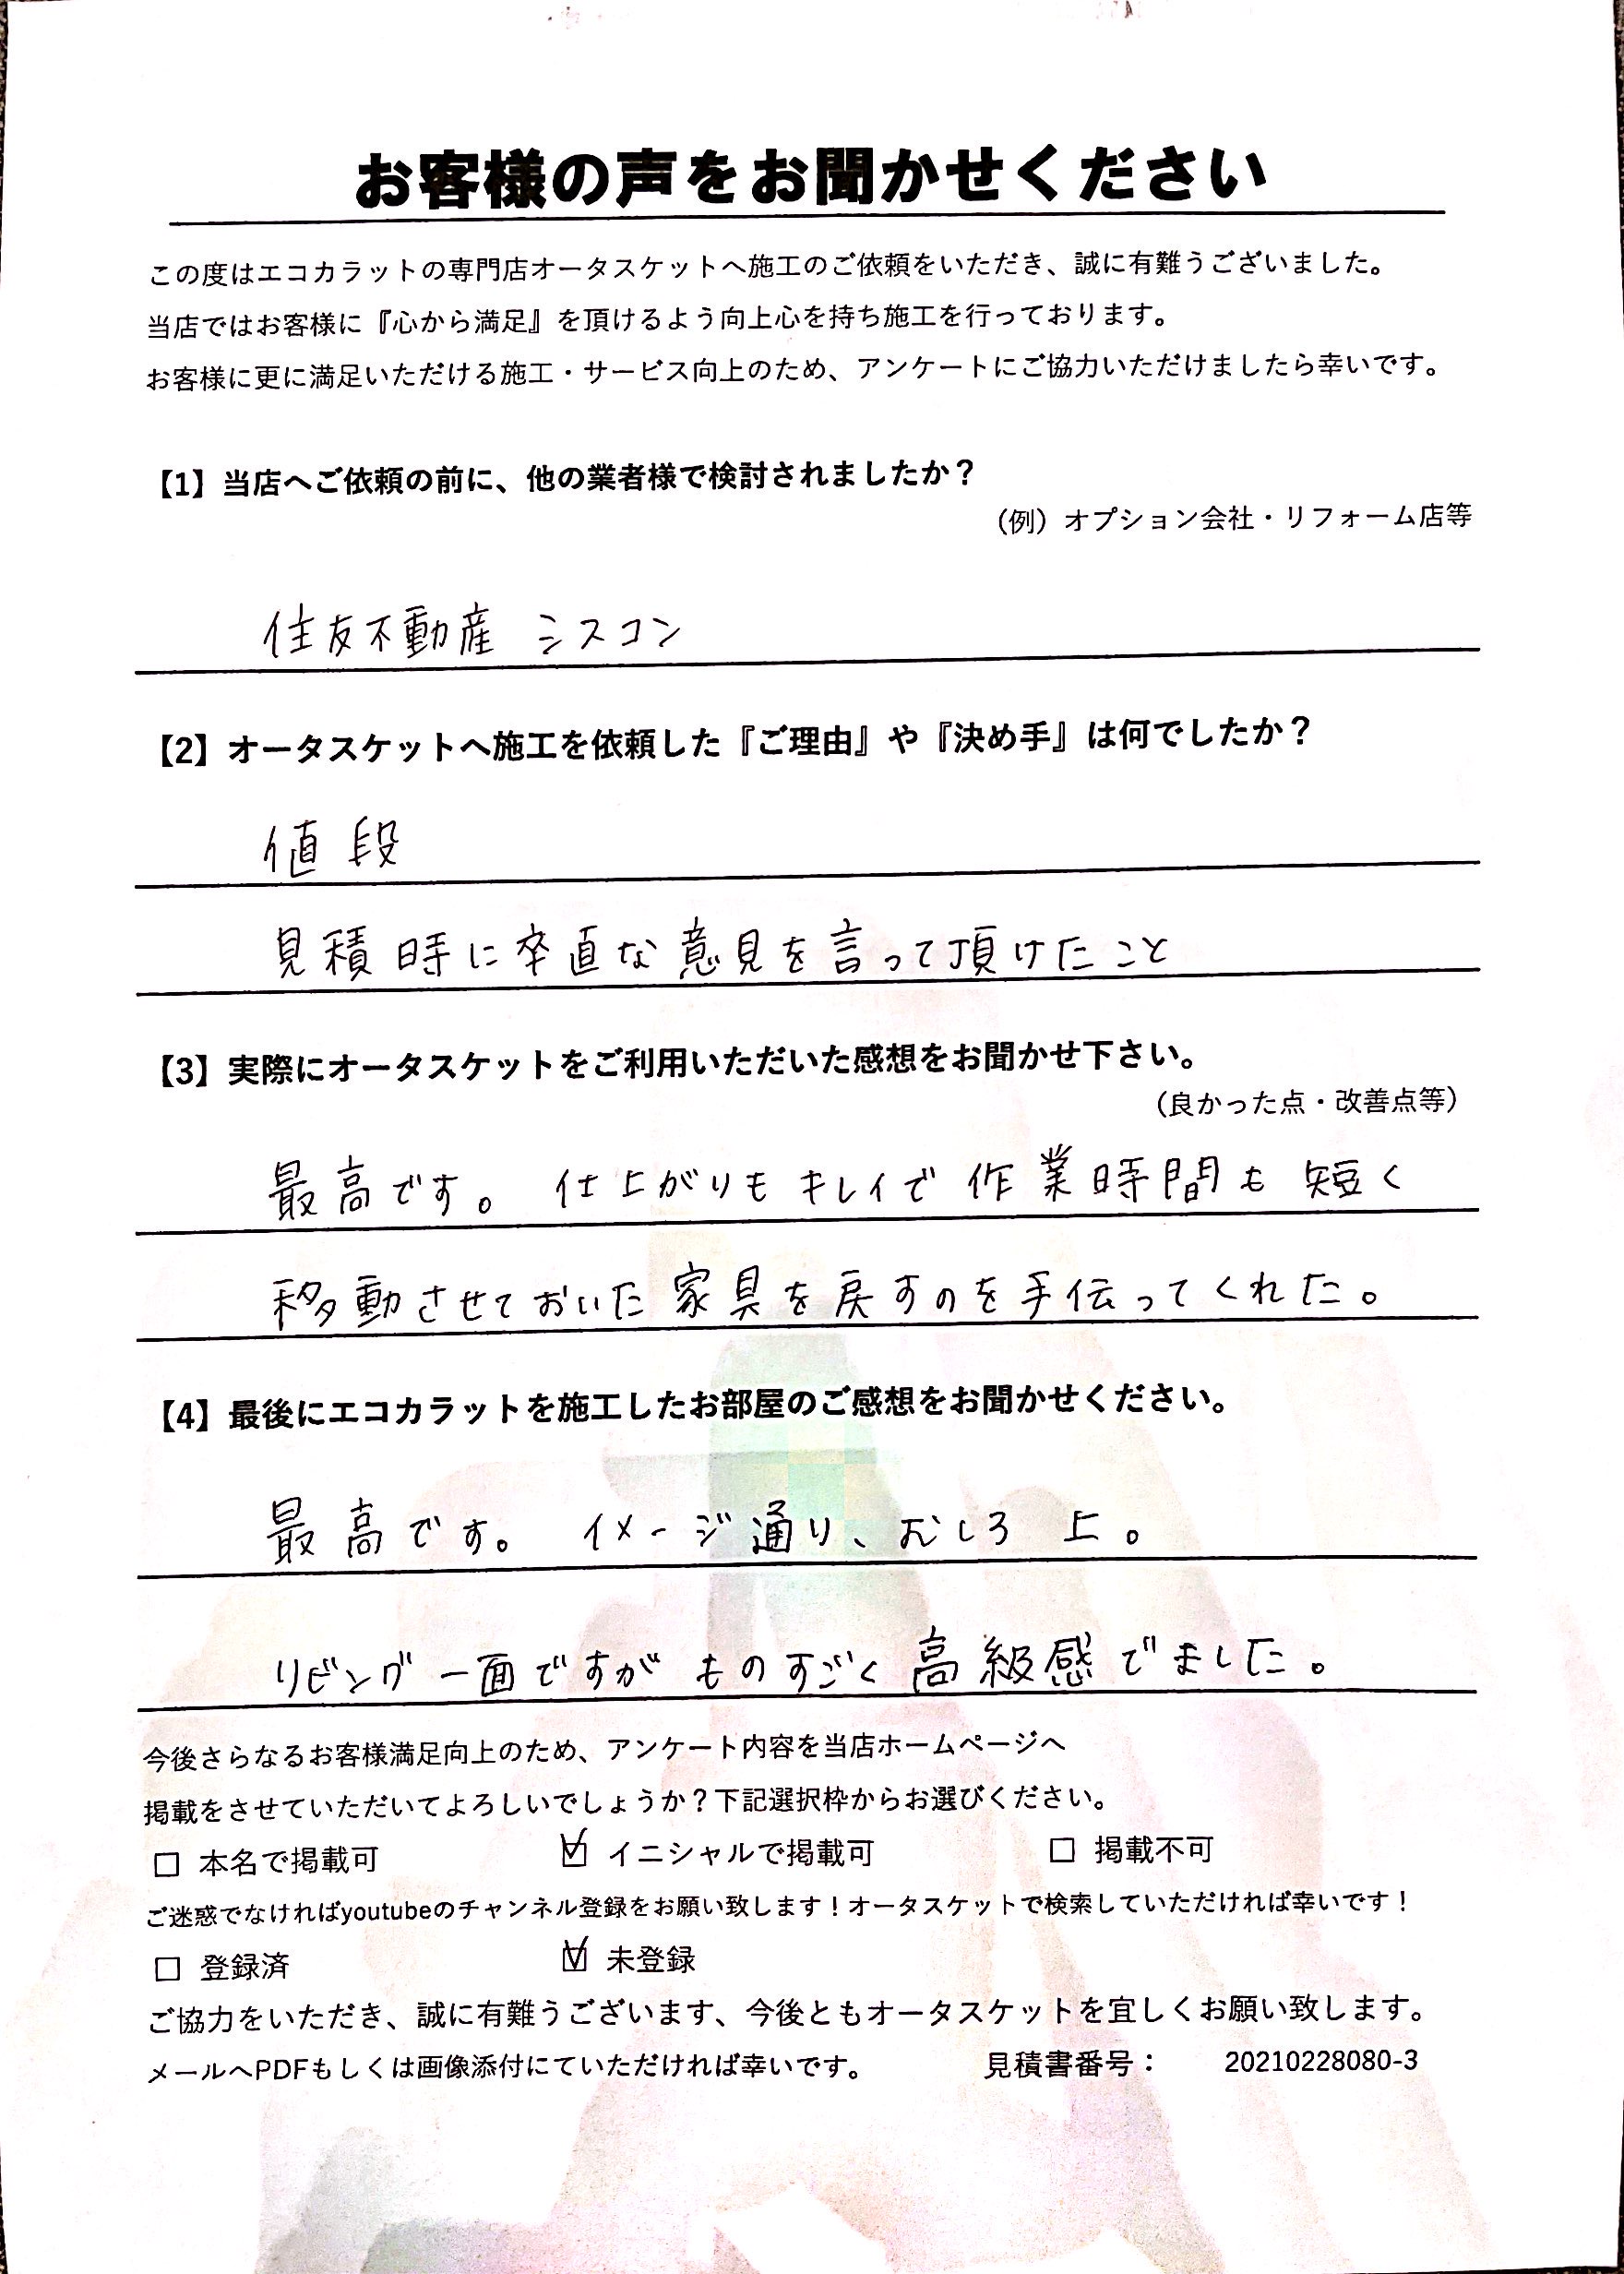 お客様の声をお聞かせください
この度はエコカラットの専門店オータスケットへ施工のご依頼をいただき、誠に有難うございました。
当店ではお客様に『心から満足』を頂けるよう向上心を持ち施工を行っております。
お客様に更に満足いただける施工・サービス向上のため、アンケートにご協力いただけましたら幸いです。
【1】当店へご依頼の前に、他の業者様で検討されましたか？
（例）オプション会社・リフォーム店等
住友不動産 シスコン
【2】オータスケットへ施工を依頼した『ご理由』や『決め手』は何でしたか？
値段
見積時に卒直な意見を言って頂けたこと
【3】実際にオータスケットをご利用いただいた感想をお聞かせ下さい。
（良かった点・改善点等）
最高です。仕上がりもキレイで作業時間も短く
移動させておいた家具を戻すのを手伝ってくれた。
【4】最後にエコカラットを施工したお部屋のご感想をお聞かせください。
最高です。イメージ通り、むしろ上。
リビング一面ですがものすごく高級感でました。
今後さらなるお客様満足向上のため、アンケート内容を当店ホームページへ
掲載をさせていただいてよろしいでしょうか？下記選択枠からお選びください。
□ 本名で掲載可 ☑ イニシャルで掲載可 □ 掲載不可
ご迷惑でなければyoutubeのチャンネル登録をお願い致します！オータスケットで検索していただければ幸いです！
□ 登録済 ☑ 未登録
ご協力をいただき、誠に有難うございます、今後ともオータスケットを宜しくお願い致します。
メールへPDFもしくは画像添付にていただければ幸いです。 見積書番号： 20210228080-3